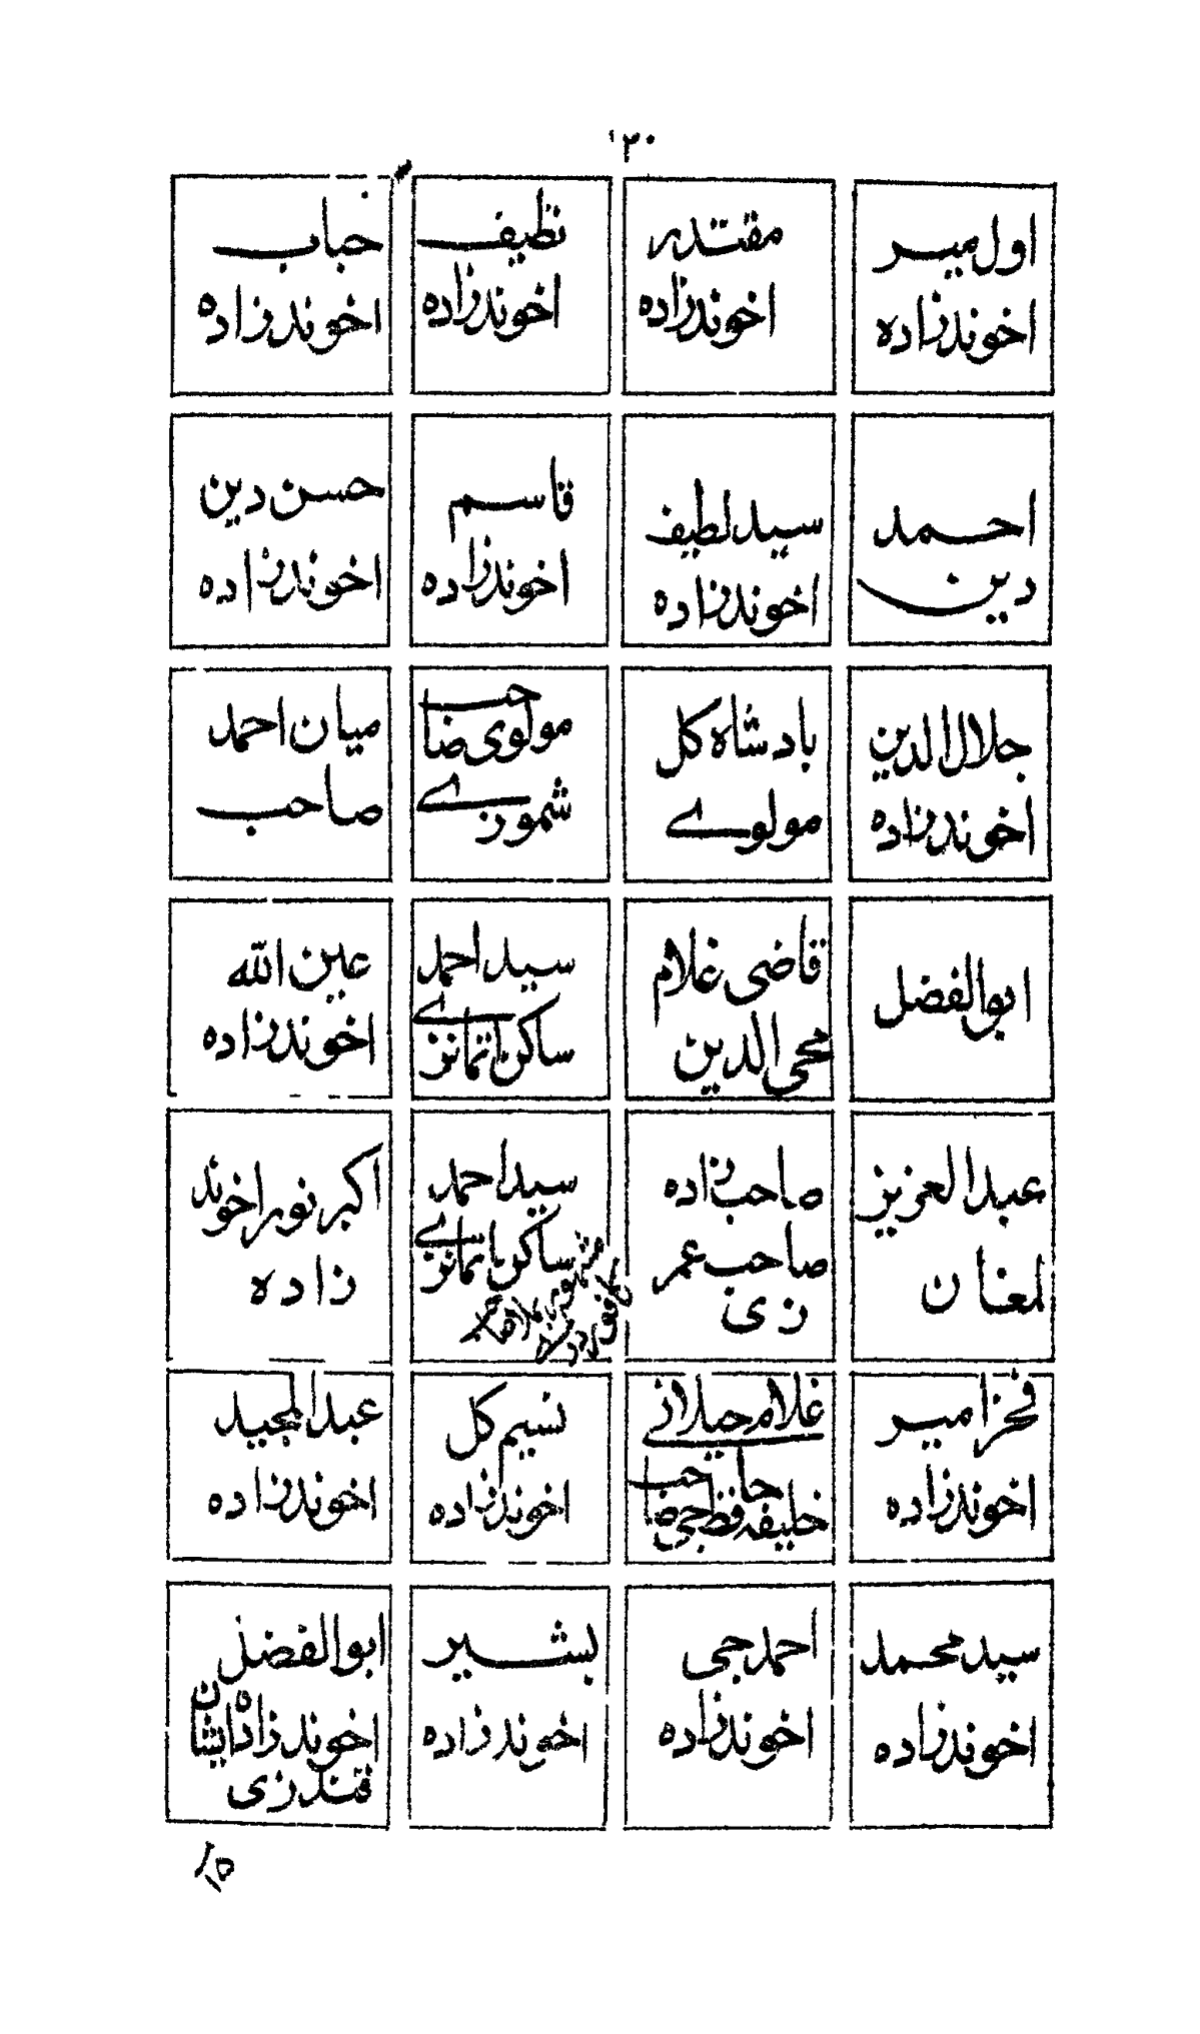 ۱۳۰
اول میر
اخوندزاده
مقتدر
اخوندزاده
نظیف
اخوندزاده
خباب
اخوندزاده
احمد
دین
سید لطیف
اخوندزاده
قاسم
اخوندزاده
حسن دین
اخوندزاده
جلال الدین
اخوندزاده
بادشاه کل
مولوے
مولوی صاحب
شموزے
میان احمد
صاحب
ابوالفضل
قاضی غلام
محی الدین
سید احمد
ساکن
عین الله
اخوندزاده
عبدالعزیز
لمغان
صاحب زاده
صاحب عمر
زی
سید احمد
ساکن
اکبر نور اخوند
زاده
فخر امیر
اخوندزاده
غلام جیلانے
خلیفه
نسیم کل
اخوندزاده
عبدالمجید
اخوندزاده
سید محمد
اخوندزاده
احمد جی
اخوندزاده
بشیر
اخوندزاده
ابوالفضل
اخوندزاده ایشان
قندزی